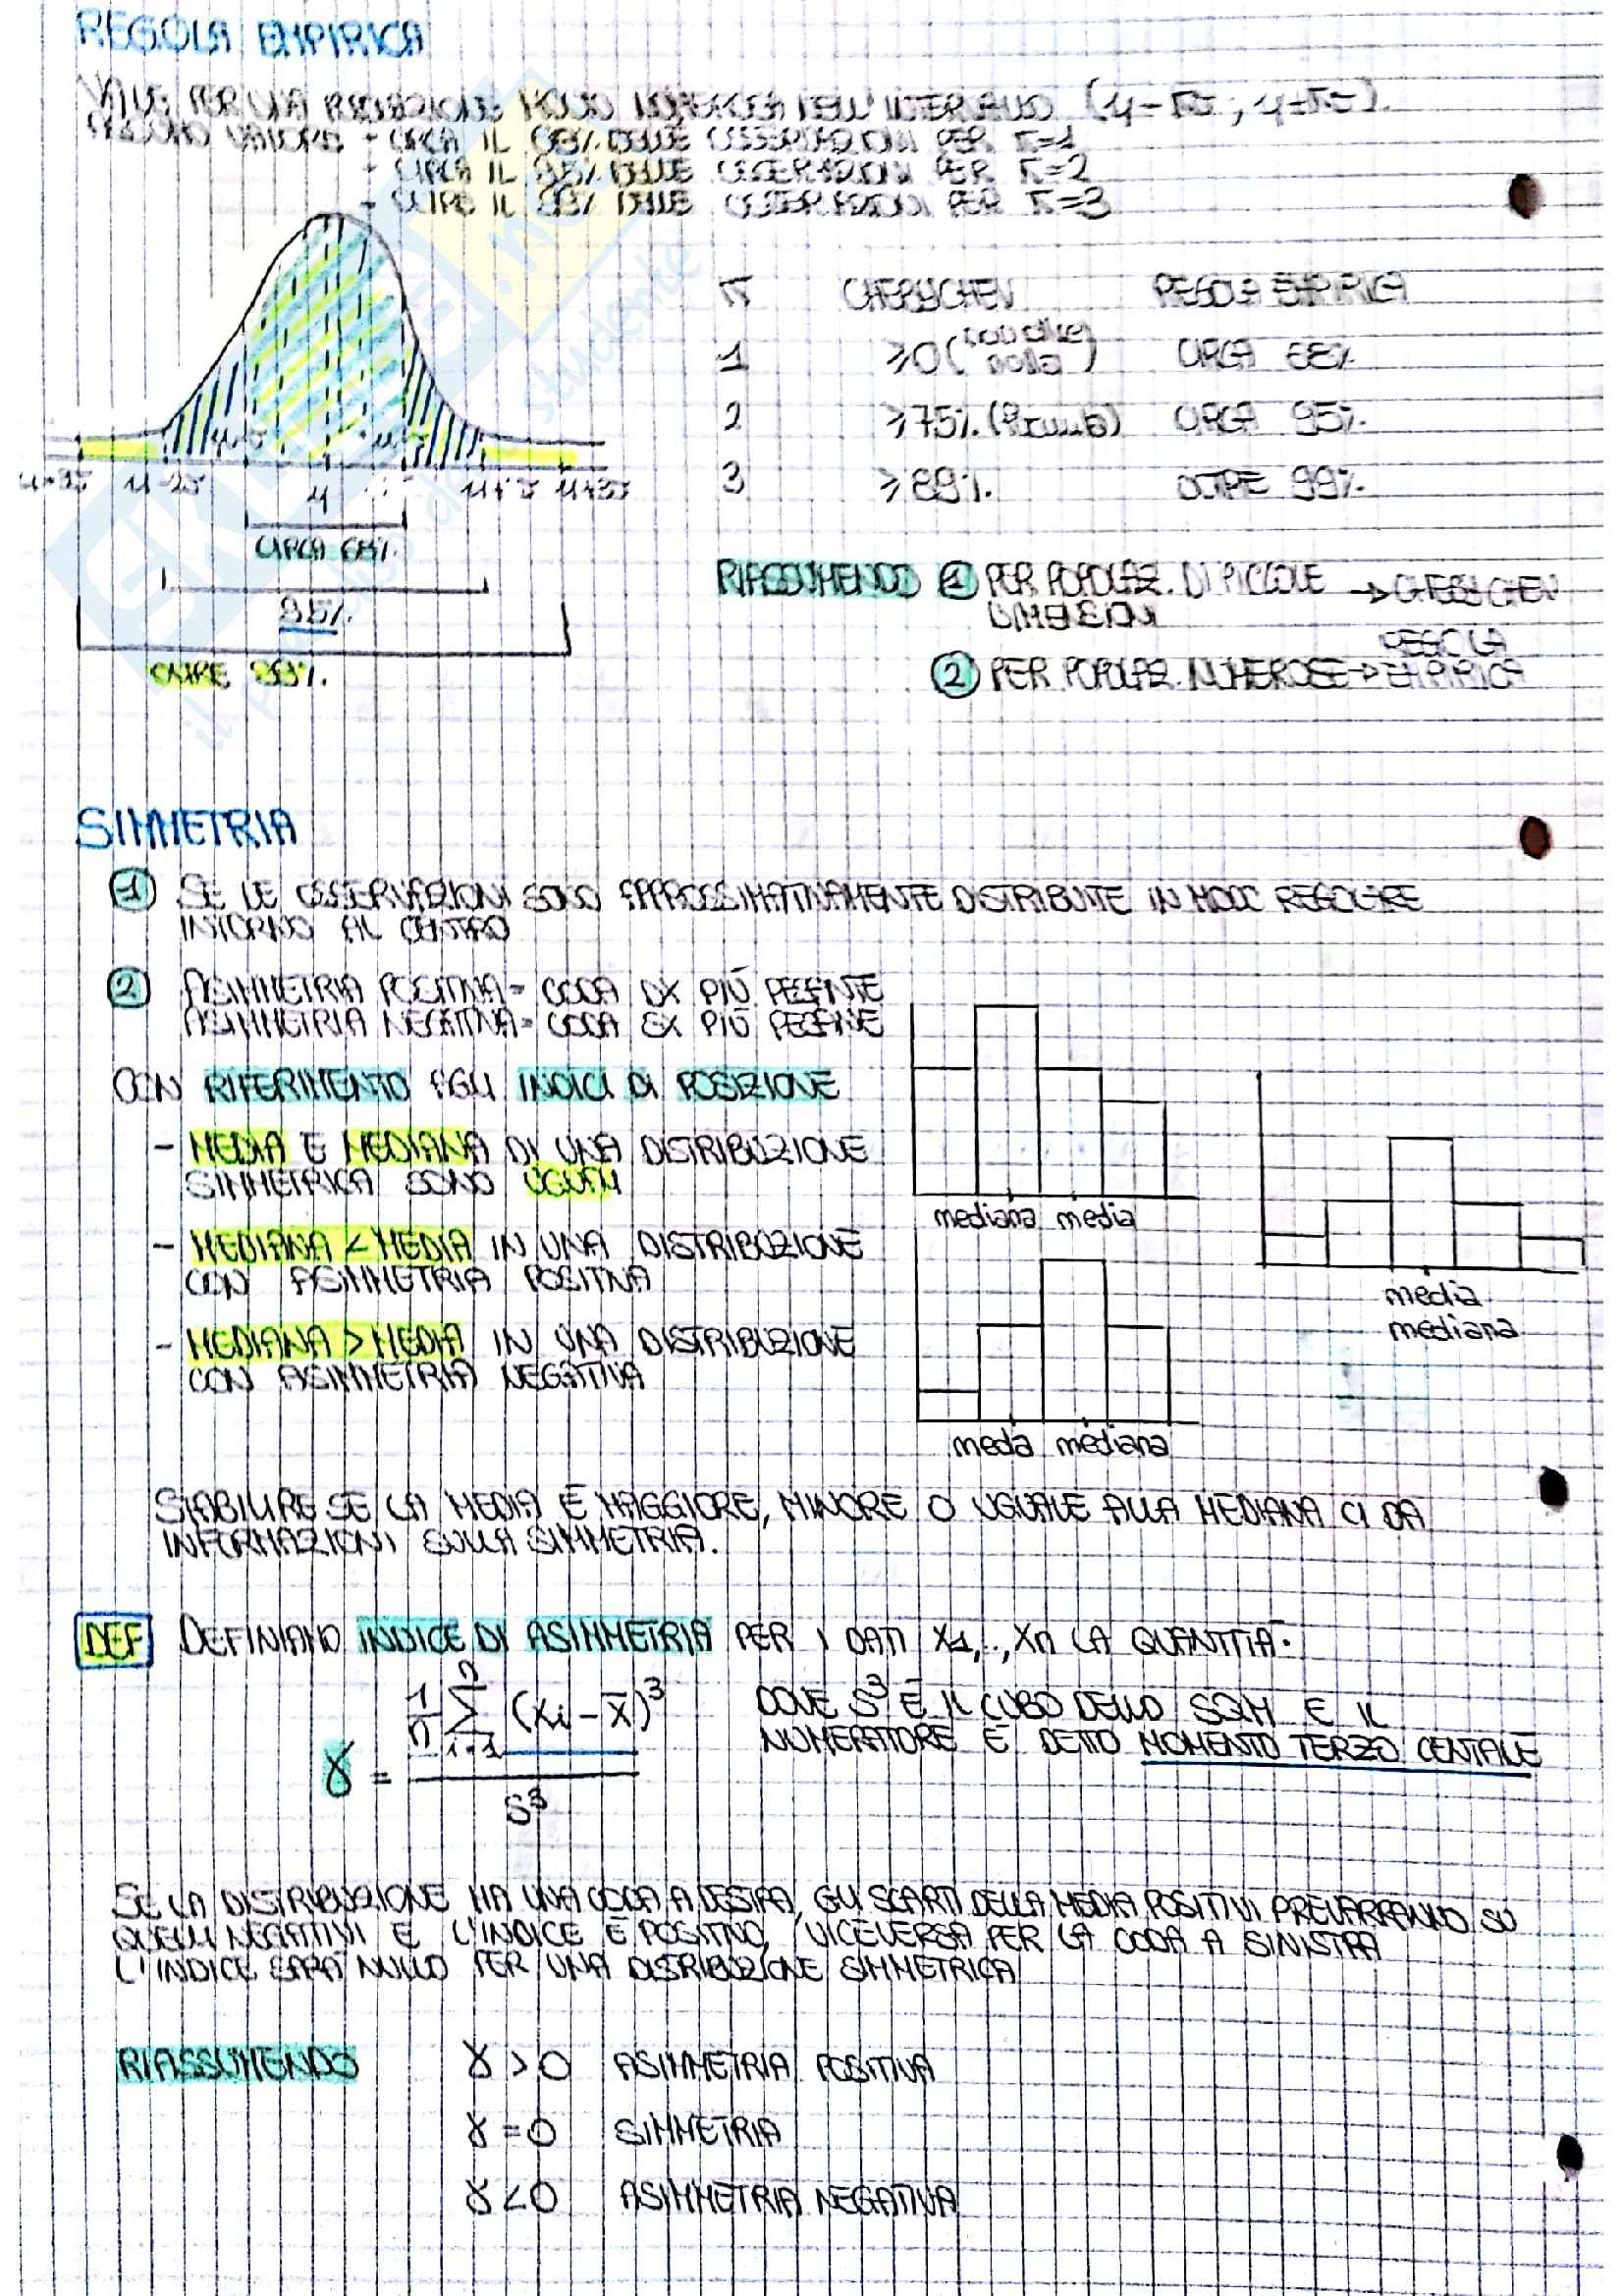 REGOLA EMPIRICA
VALE PER UNA POPOLAZIONE MOLTO NUMEROSA NELL'INTERVALLO (μ-Kσ; μ±Kσ).
VALORI - CIRCA IL 68% DELLE OSSERVAZIONI PER K=1
- CIRCA IL 95% DELLE OSSERVAZIONI PER K=2
- OLTRE IL 99% DELLE OSSERVAZIONI PER K=3
K CHEBYCHEV REGOLA EMPIRICA
1 ≥0 (nulla) CIRCA 68%
2 ≥75% CIRCA 95%
3 ≥89% OLTRE 99%
μ-σ μ+σ
μ-3σ μ-2σ μ μ+2σ μ+3σ
CIRCA 68%
95%
OLTRE 99%
RIASSUMENDO 1 PER POPOLAZ. DI PICCOLE → CHEBYCHEV
DIMENSIONI
REGOLA
2 PER POPOLAZ. NUMEROSE → EMPIRICA
SIMMETRIA
1 SE LE OSSERVAZIONI SONO APPROSSIMATIVAMENTE DISTRIBUITE IN MODO REGOLARE
INTORNO AL CENTRO
2 ASIMMETRIA POSITIVA= CODA DX PIÙ PESANTE
ASIMMETRIA NEGATIVA= CODA SX PIÙ PESANTE
CON RIFERIMENTO AGLI INDICI DI POSIZIONE
- MEDIA E MEDIANA DI UNA DISTRIBUZIONE
SIMMETRICA SONO UGUALI
mediana media
- MEDIANA < MEDIA IN UNA DISTRIBUZIONE
CON ASIMMETRIA POSITIVA
media
mediana
- MEDIANA > MEDIA IN UNA DISTRIBUZIONE
CON ASIMMETRIA NEGATIVA
meda mediana
STABILIRE SE LA MEDIA È MAGGIORE, MINORE O UGUALE ALLA MEDIANA CI DA
INFORMAZIONI SULLA SIMMETRIA.
DEF DEFINIAMO INDICE DI ASIMMETRIA PER I DATI X1,..,Xn LA QUANTITÀ.
γ = 1/n Σ n i=1 (xi - x̄)³ / S³
DOVE S³ È IL CUBO DELLO SQM E IL
NUMERATORE È DETTO MOMENTO TERZO CENTALE
SE LA DISTRIBUZIONE HA UNA CODA A DESTRA, GLI SCARTI DELLA MEDIA POSITIVI PREVARRANNO SU
QUELLI NEGATIVI E L'INDICE È POSITIVO, VICEVERSA PER LA CODA A SINISTRA
L'INDICE SARÀ NULLO PER UNA DISTRIBUZIONE SIMMETRICA
RIASSUMENDO γ > 0 ASIMMETRIA POSITIVA
γ = 0 SIMMETRIA
γ < 0 ASIMMETRIA NEGATIVA